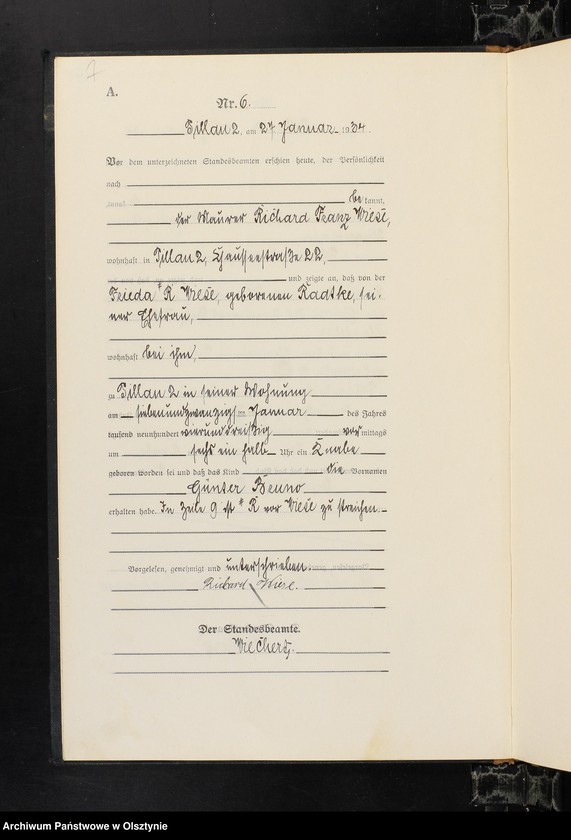 7
A.
Nr. 6.
Pillau 2, am 27. Januar 1934.
Vor dem unterzeichneten Standesbeamten erschien heute, der Persönlichkeit
nach
be kannt,
der Maurer Richard Franz Wiese,
wohnhaft in Pillau 2, Chausseestraße 22,
und zeigte an, daß von der
Frieda * R Wiese, geborenen Radtke, sei-
ner Ehefrau,
wohnhaft bei ihm,
zu Pillau 2 in seiner Wohnung
am siebenundzwanzigsten Januar des Jahres
tausend neunhundert vierunddreißig vor mittags
um sechs ein halb Uhr ein Knabe
geboren worden sei und daß das Kind die Vornamen
Günter Benno
erhalten habe. In Zeile 9 ist * R vor Wiese zu streichen.
Vorgelesen, genehmigt und unterschrieben.
Richard Wiese.
Der Standesbeamte.
Wiechert.
Archiwum Państwowe w Olsztynie